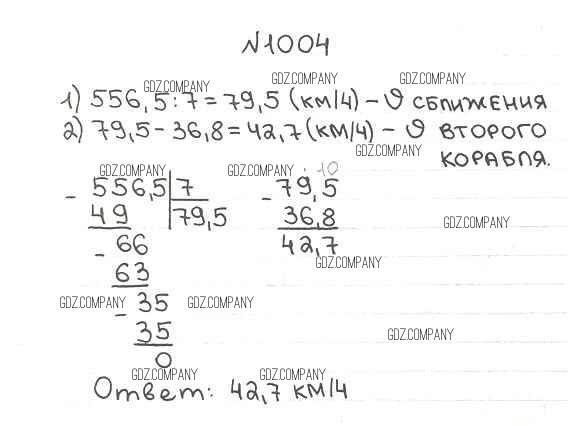 №1004
GDZ.COMPANY GDZ.COMPANY GDZ.COMPANY
1) 556,5:7=79,5 (км/ч) – υ сближения
2) 79,5–36,8=42,7 (км/ч) – υ второго
GDZ.COMPANY корабля.
GDZ.COMPANY GDZ.COMPANY
10
- 556,5 7 - 79,5
49 79,5 36,8 GDZ.COMPANY
- 66 42,7
63 GDZ.COMPANY
GDZ.COMPANY - 35 GDZ.COMPANY
35 GDZ.COMPANY
0
GDZ.COMPANY GDZ.COMPANY
Ответ: 42,7 км/ч